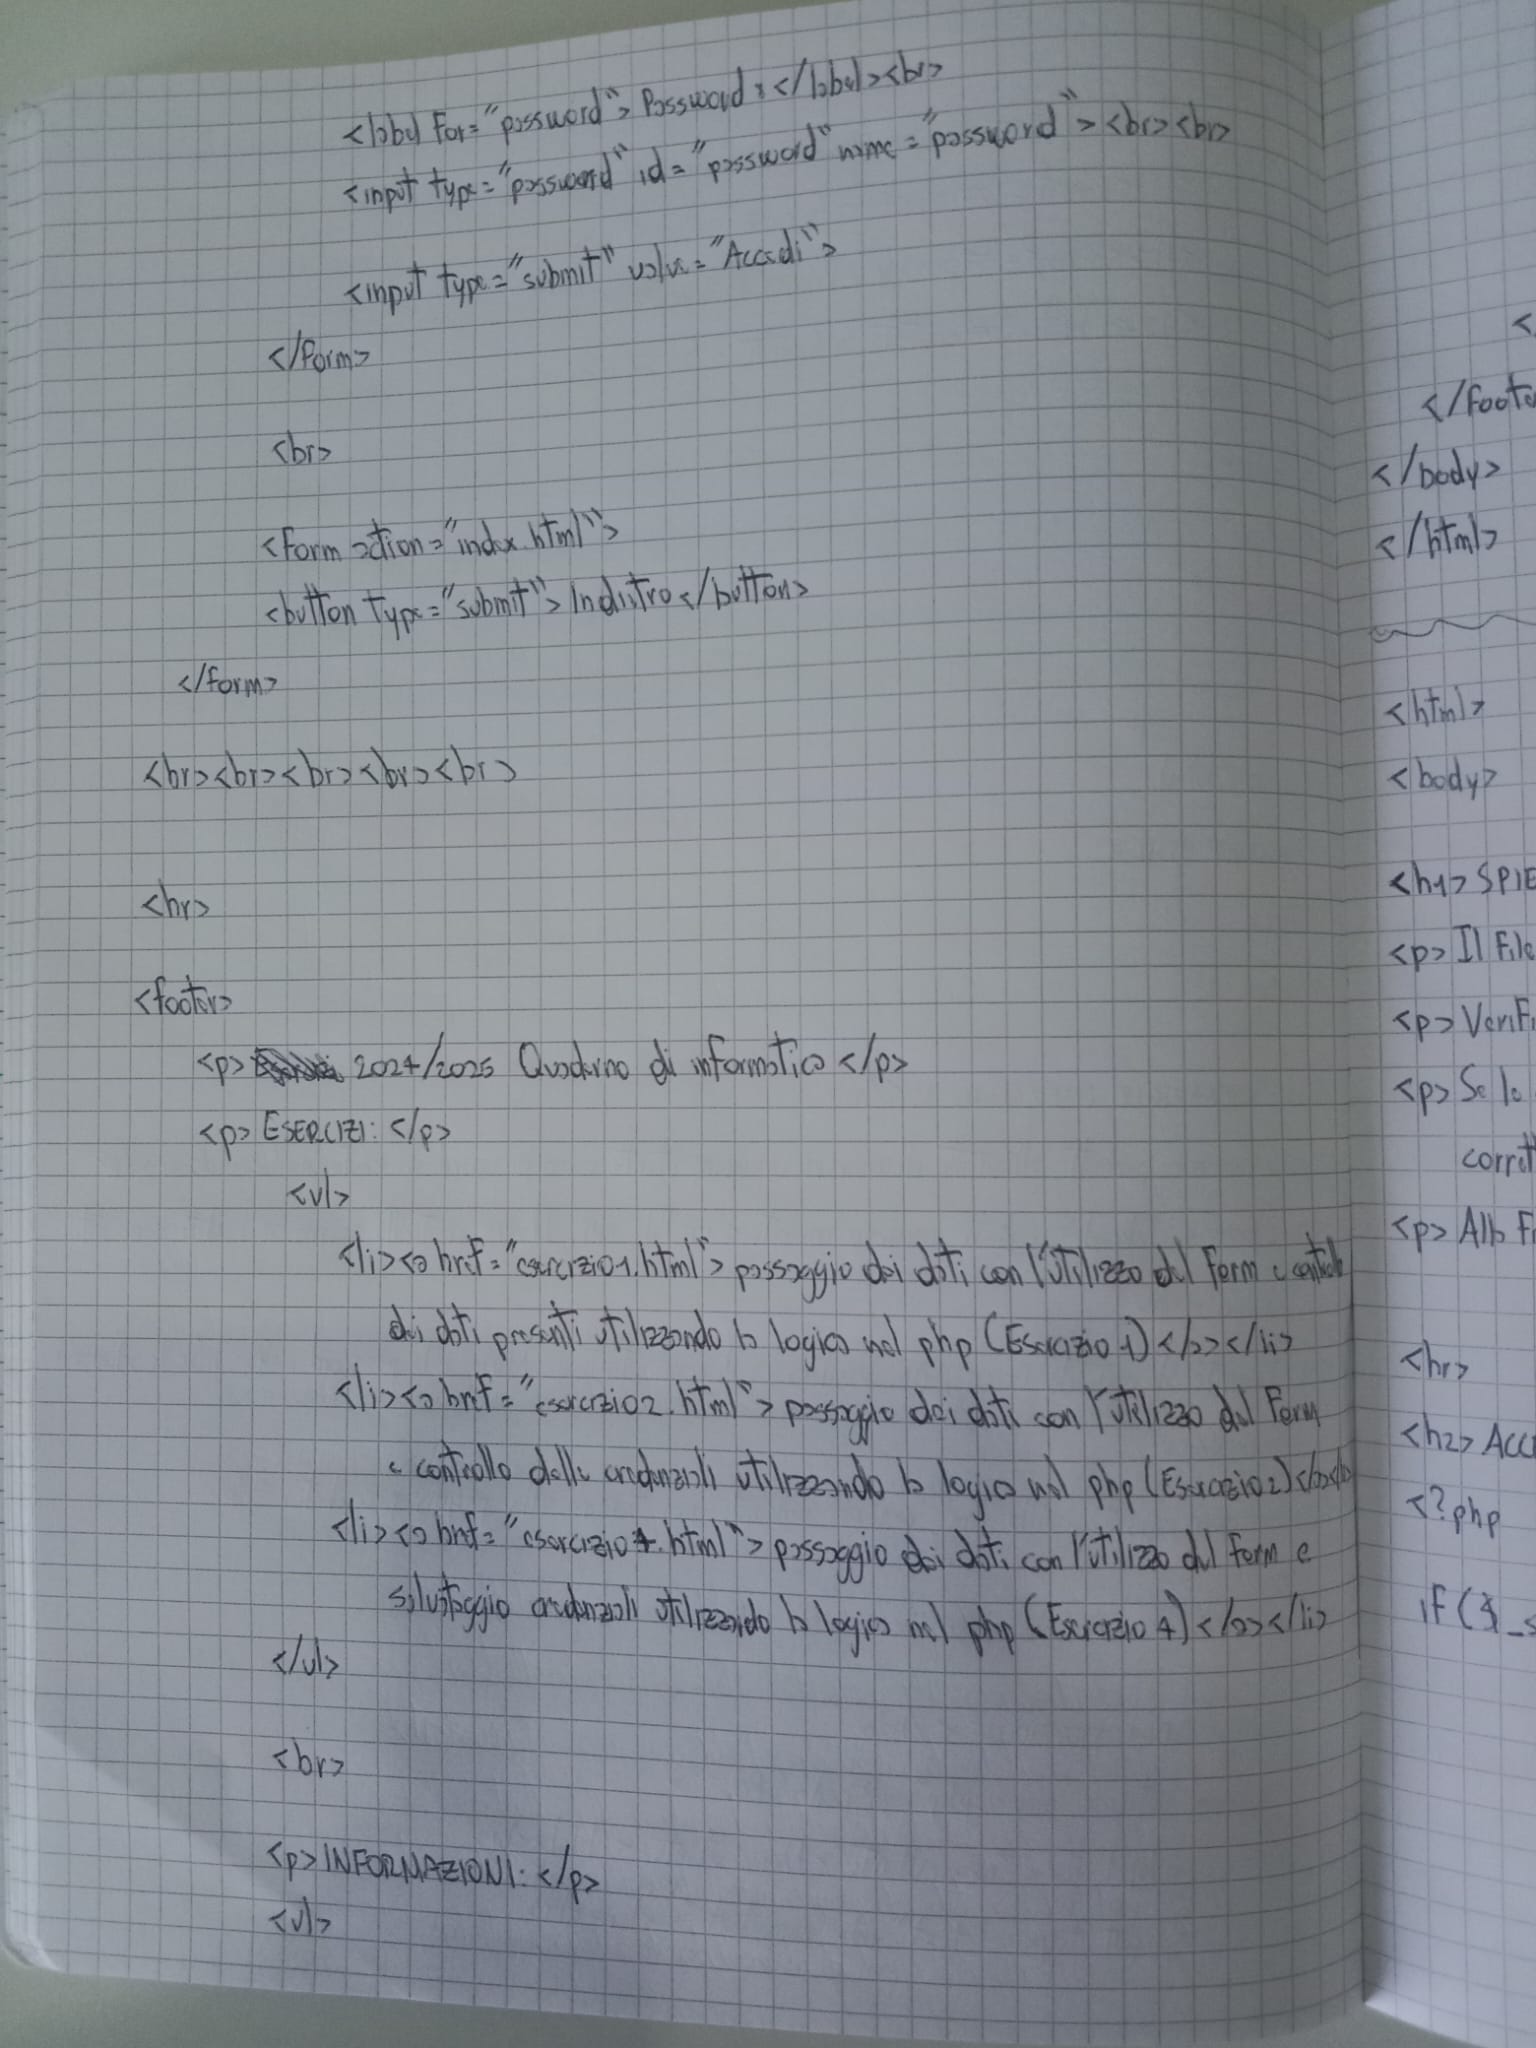 <label for="password">Password:</label><br>
<input type="password" id="password" name="password"><br><br>
<input type="submit" value="Accedi">
</form>
<br>
<form action="index.html">
<button type="submit">Indietro</button>
</form>
<br><br><br><br><br>
<hr>
<footer>
<p> 2024/2025 Quaderno di informatica</p>
<p>ESERCIZI:</p>
<ul>
<li><a href="esercizio1.html">passaggio dei dati con l'utilizzo del form e controllo
dei dati presenti utilizzando la logica nel php (Esercizio 1)</a></li>
<li><a href="esercizio2.html">passaggio dei dati con l'utilizzo del form
e controllo delle credenziali utilizzando la logica nel php (Esercizio 2)</a></li>
<li><a href="esercizio4.html">passaggio dei dati con l'utilizzo del form e
salvataggio credenziali utilizzando la logica nel php (Esercizio 4)</a></li>
</ul>
<br>
<p>INFORMAZIONI:</p>
<ul>
<
</foote
</body>
</html>
<html>
<body>
<h1>SPIE
<p>Il File
<p>Verifi
<p>Se le
corrett
<p>Alla F
<hr>
<h2>ACC
<?php
if($_s